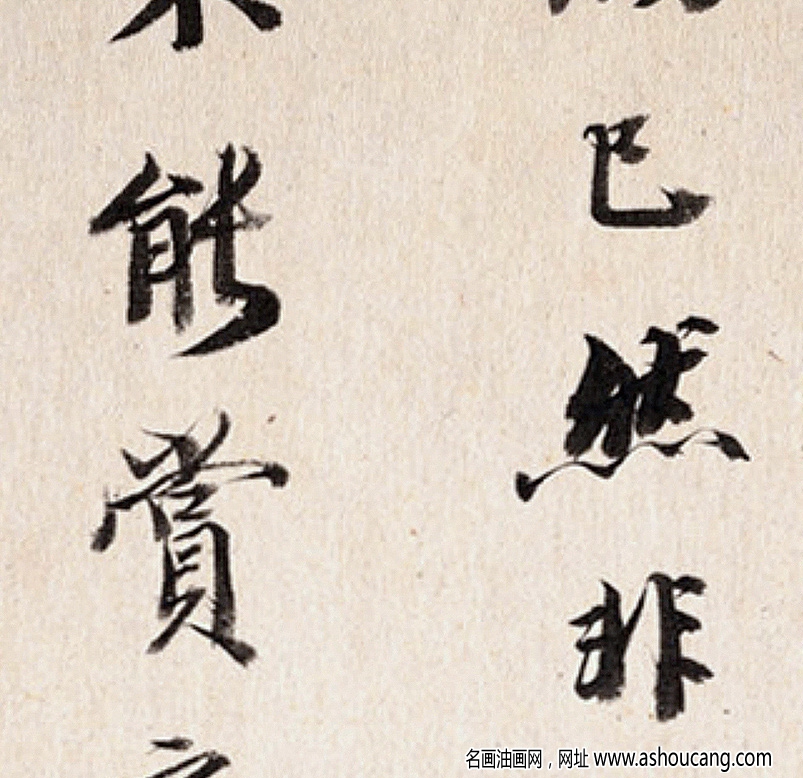 已然非
能賞
名画油画网，网址 www.ashoucang.com